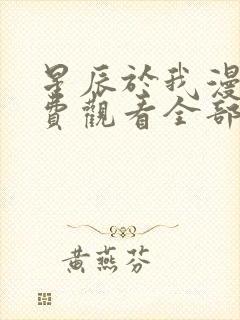 星辰於我漫
費觀看全部
黃燕芬